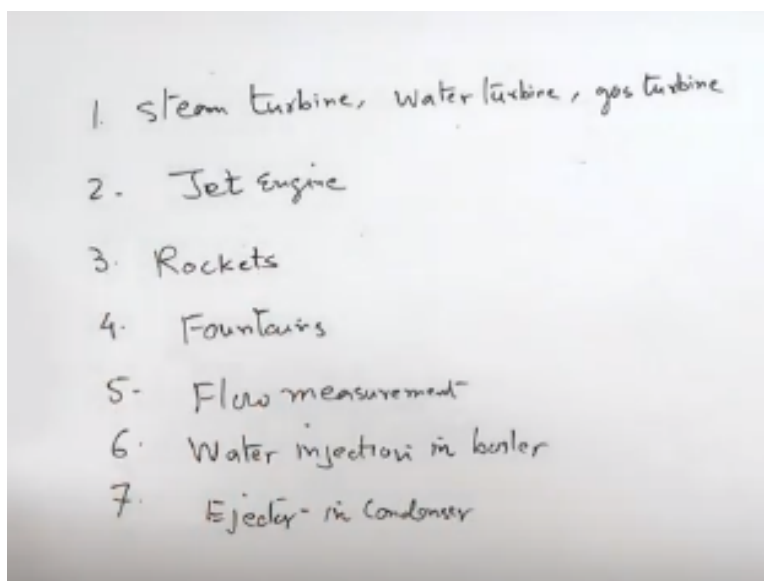 1. Steam turbine, Water turbine, gas turbine
2. Jet Engine
3. Rockets
4. Fountains
5. Flow measurement
6. Water injection in boiler
7. Ejector in Condenser